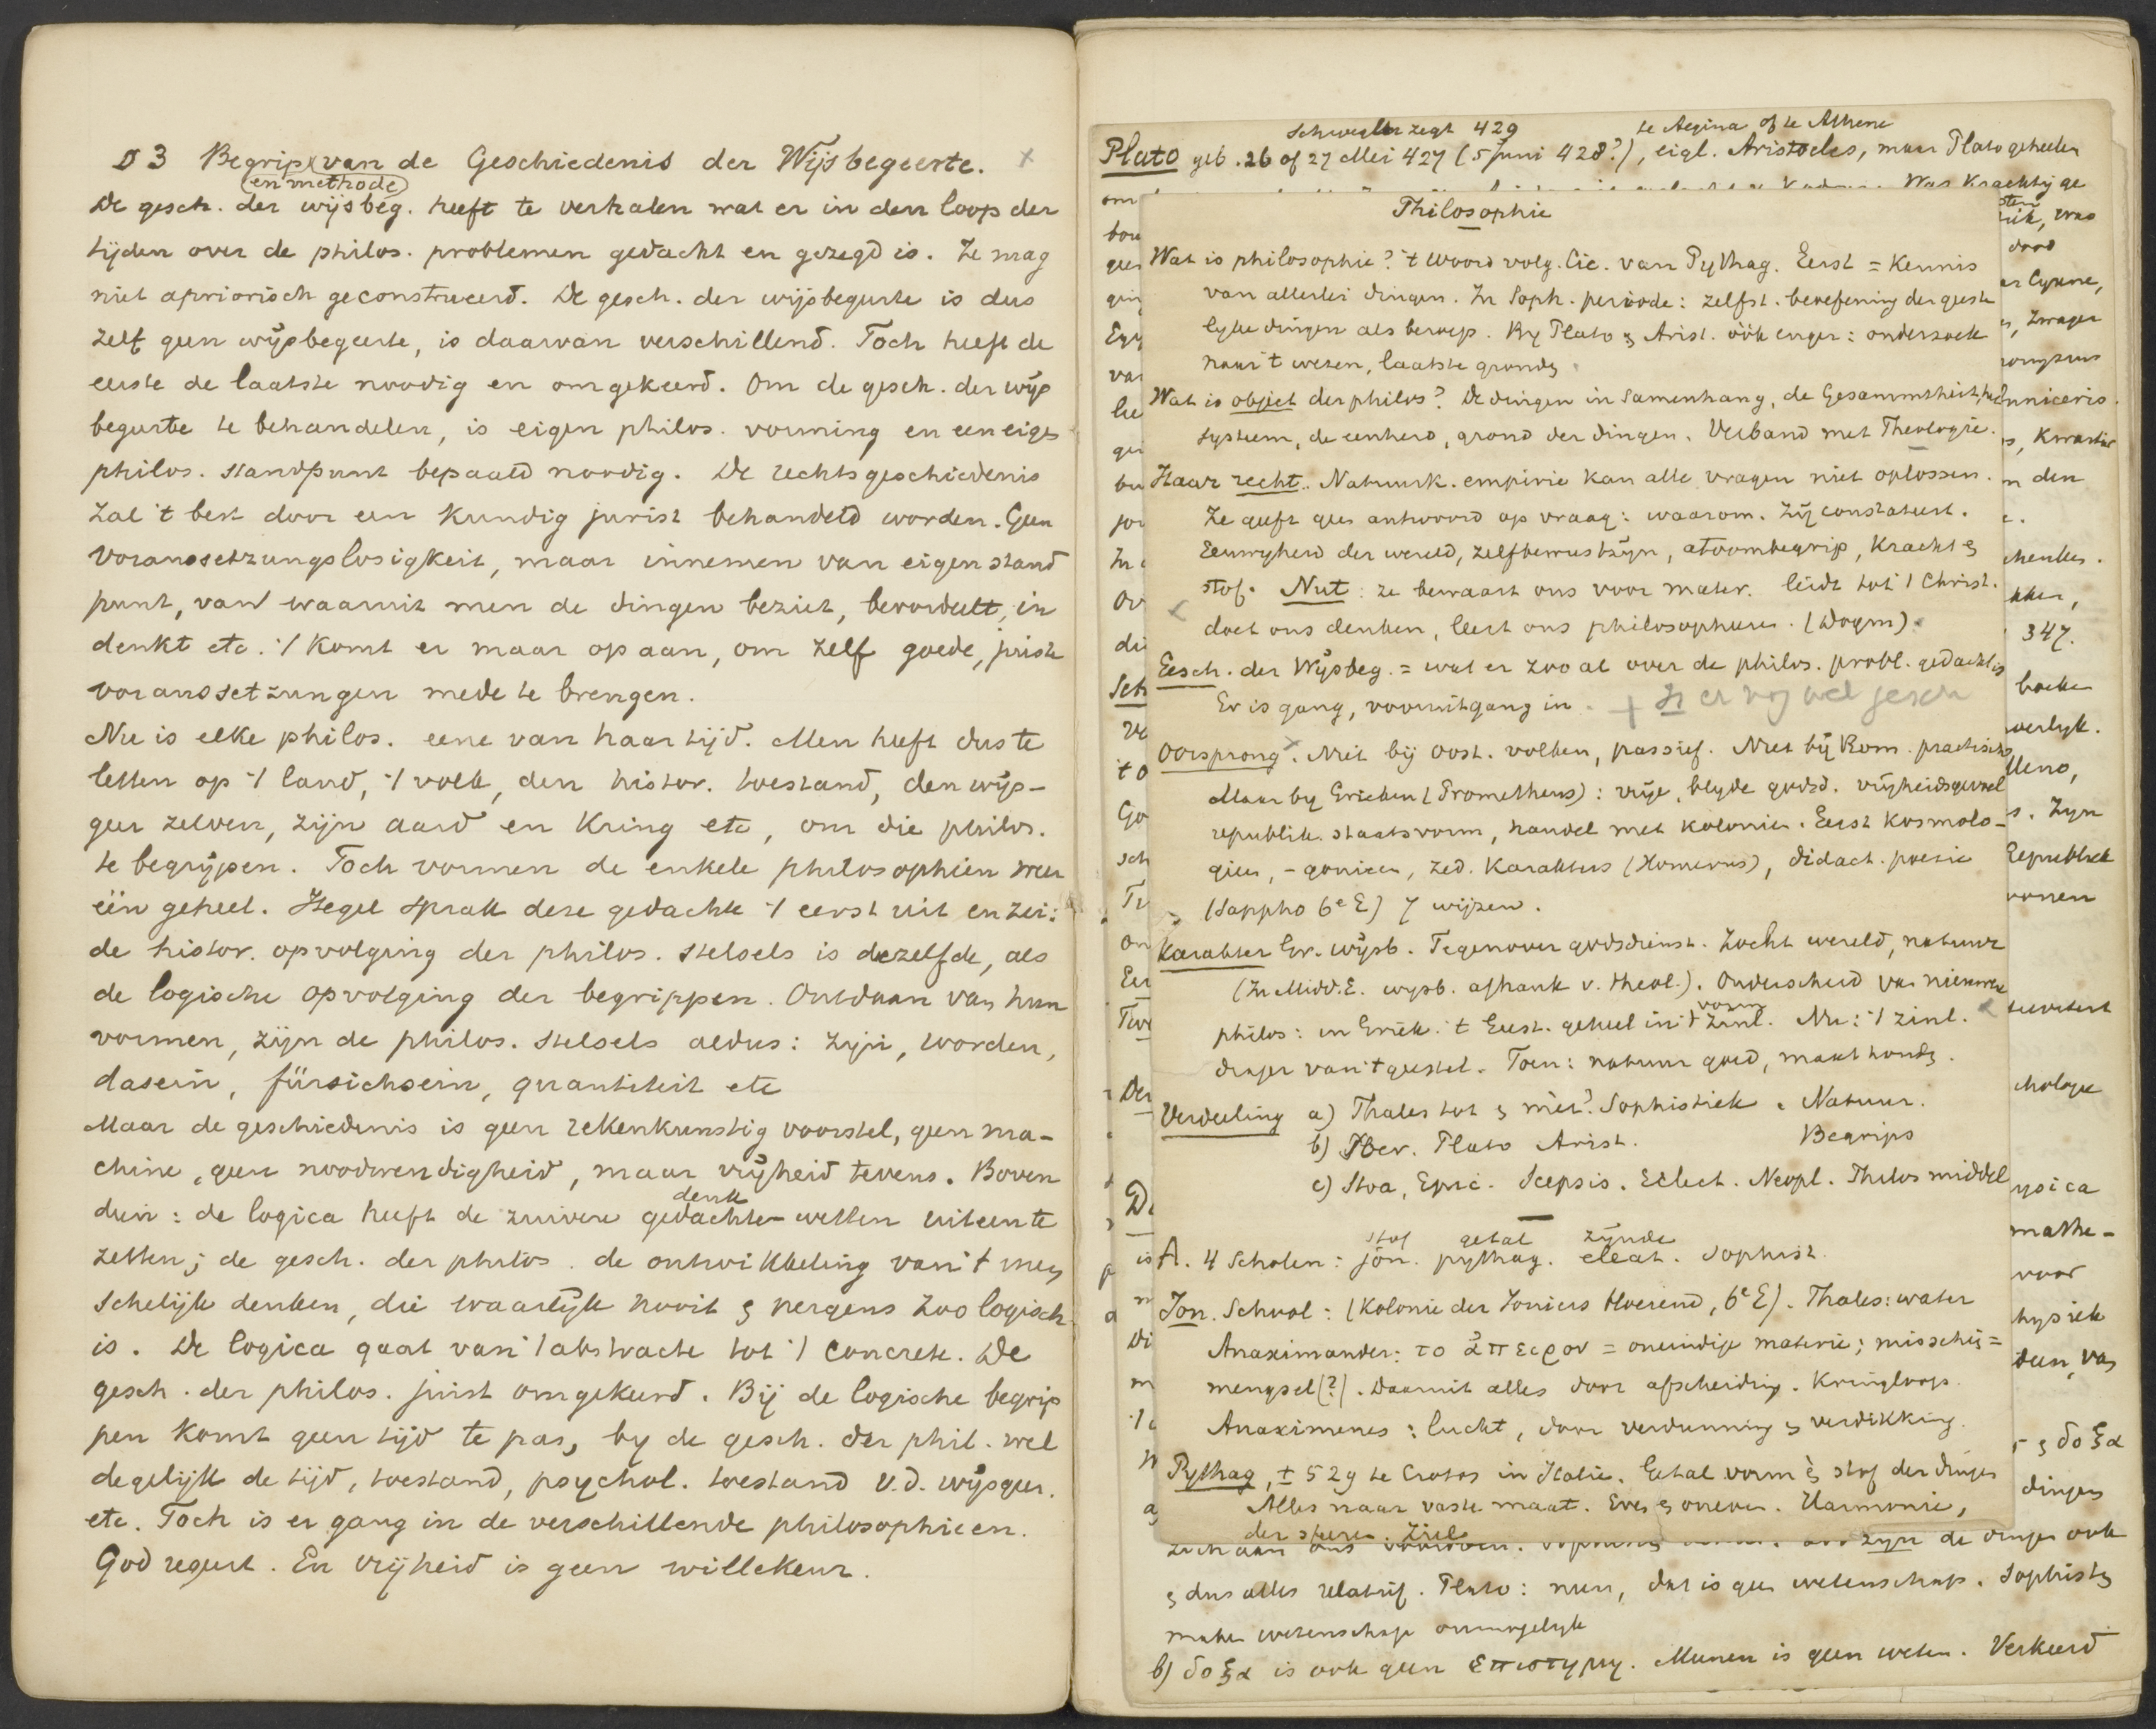 § 3 Begrip van de Geschiedenis der Wijsbegeerte. x
(en methode)
De gesch. der wijsbeg. heeft te verhalen wat er in den loop der
tijden over de philos. problemen gedacht en gezegd is. Ze mag
niet apriorisch geconstrueerd. De gesch. der wijsbegeerte is dus
zelf geen wijsbegeerte, is daarvan verschillend. Toch heeft de
eerste de laatste noodig en omgekeerd. Om de gesch. der wijs
begeerte te behandelen, is eigen philos. vorming en een eigen
philos. standpunt bepaald noodig. De rechtsgeschiedenis
zal 't best door een kundig jurist behandeld worden. Geen
Voraussetzungslosigkeit, maar innemen van eigen stand
punt, van waaruit men de dingen beziet, beoordeelt, in
denkt etc. 't Komt er maar op aan, om zelf goede, juiste
voraussetzungen mede te brengen.
Nu is elke philos. eene van haar tijd. Men heeft dus te
letten op 't land, 't volk, den histor. toestand, den wijs-
geer zelven, zijn aard en kring etc, om die philos.
te begrijpen. Toch vormen de enkele philosophien weer
één geheel. Hegel sprak deze gedachte 't eerst uit en zei:
de histor. opvolging der philos. stelsels is dezelfde, als
de logische opvolging der begrippen. Ontdaan van hun
vormen, zijn de philos. stelsels aldus: zijn, worden,
dasein, fürsichsein, quantiteit etc
Maar de geschiedenis is geen rekenkunstig voorstel, geen ma-
chine, geen noodwendigheid, maar vrijheid tevens. Boven
dien: de logica heeft de zuivere gedachte-wetten uiteen te
denk
zetten; de gesch. der philos. de ontwikkeling van 't men
schelijk denken, die waarlijk nooit en nergens zoo logisch
is. De logica gaat van 't abstracte tot 't concrete. De
gesch. der philos. juist omgekeerd. Bij de logische begrip
pen komt geen tijd te pas, by de gesch. der phil. wel
degelijk de tijd, toestand, psychol. toestand v.d. wijsgeer.
etc. Toch is er gang in de verschillende philosophieen.
God regeert. En vrijheid is geen willekeur.
Schwegler zegt 429 te Aegina of te Athene
Plato geb. 26 of 27 Mei 427 (5 Juni 428?), eigl. Aristocles, maar Plato geheeten
Was krachtig ge
Philosophie
Wat is philosophie? 't Woord volg. Cic. van Pythag. Eerst = kennis
van allerlei dingen. In Soph. periode: zelfst. beoefening der geeste
lyke dingen als beroep. By Plato en Arist. óók enger: onderzoek
naar 't wezen, laatste gronden
Wat is object der philos? De dingen in samenhang, de Gesammtheit, het
systeem, de eenheid, grond der dingen. Verband met Theologie.
Haar recht. Natuurk. empirie kan alle vragen niet oplossen.
Ze geeft geen antwoord op vraag: waarom. Zij constateert.
Eeuwigheid der wereld, zelfbewustzijn, atoombegrip, kracht en
stof. Nut: ze bewaart ons voor mater. leidt tot 't Christ.
doet ons denken, leert ons philosopheeren. (Dogm)
Gesch. der Wijsbeg. = wat er zoo al over de philos. probl. gedacht is
Er is gang, vooruitgang in.
Oorsprong. Niet bij Oost. volken, passief. Niet bij Rom. practisch
Maar by Grieken (Prometheus): vrije, blyde godsd. vrijheidsgevoel
republik. staatsvorm, handel met kolonien. Eerst kosmolo-
gieen, -gonieen, zed. karakters (Homerus), didact. poezie
(Sappho 6e E) 7 wijzen.
Karakter Gr. wijsb. Tegenover godsdienst. Zocht wereld, natuur
(In Midd. E. wysb. afhank v. theol.). Onderscheid van nieuwere
philos: in Griek. 't Geest. geheel in 't zinl. Nu: 't zinl.
vorm
drager van 't geestel. Toen: natuur goed, maat houden.
Verdeeling a) Thales tot en mèt? Sophistiek. Natuur.
b) Socr. Plato Arist. Begrips
c) Stoa, Epic. Scepsis. Eclect. Neopl. Philos middel
stof getal zijnde
A. 4 Scholen: jön. pythag. eleat. Sophist.
Jon. School: (Kolonie der Joniers bloeiend, 6e E). Thales: water
Anaximander: το ἄπειρον = oneindige materie; misschien =
mengsel (?). Daaruit alles door afscheiding. Kringloop.
Anaximenes: lucht, door verdunning en verdikking.
Pythag, ± 529 te Croton in Italie. Getal vorm èn stof der dingen
Alles naar vaste maat. Even en oneven. Harmonie,
der sferen. Ziel
zijn de dingen ook
en dus alles relatief. Plato: neen, dat is geen wetenschap. Sophisten
maken wetenschap onmogelyk
b) δοξα is ook geen επιστημη. Meenen is geen weten. Verkeerd